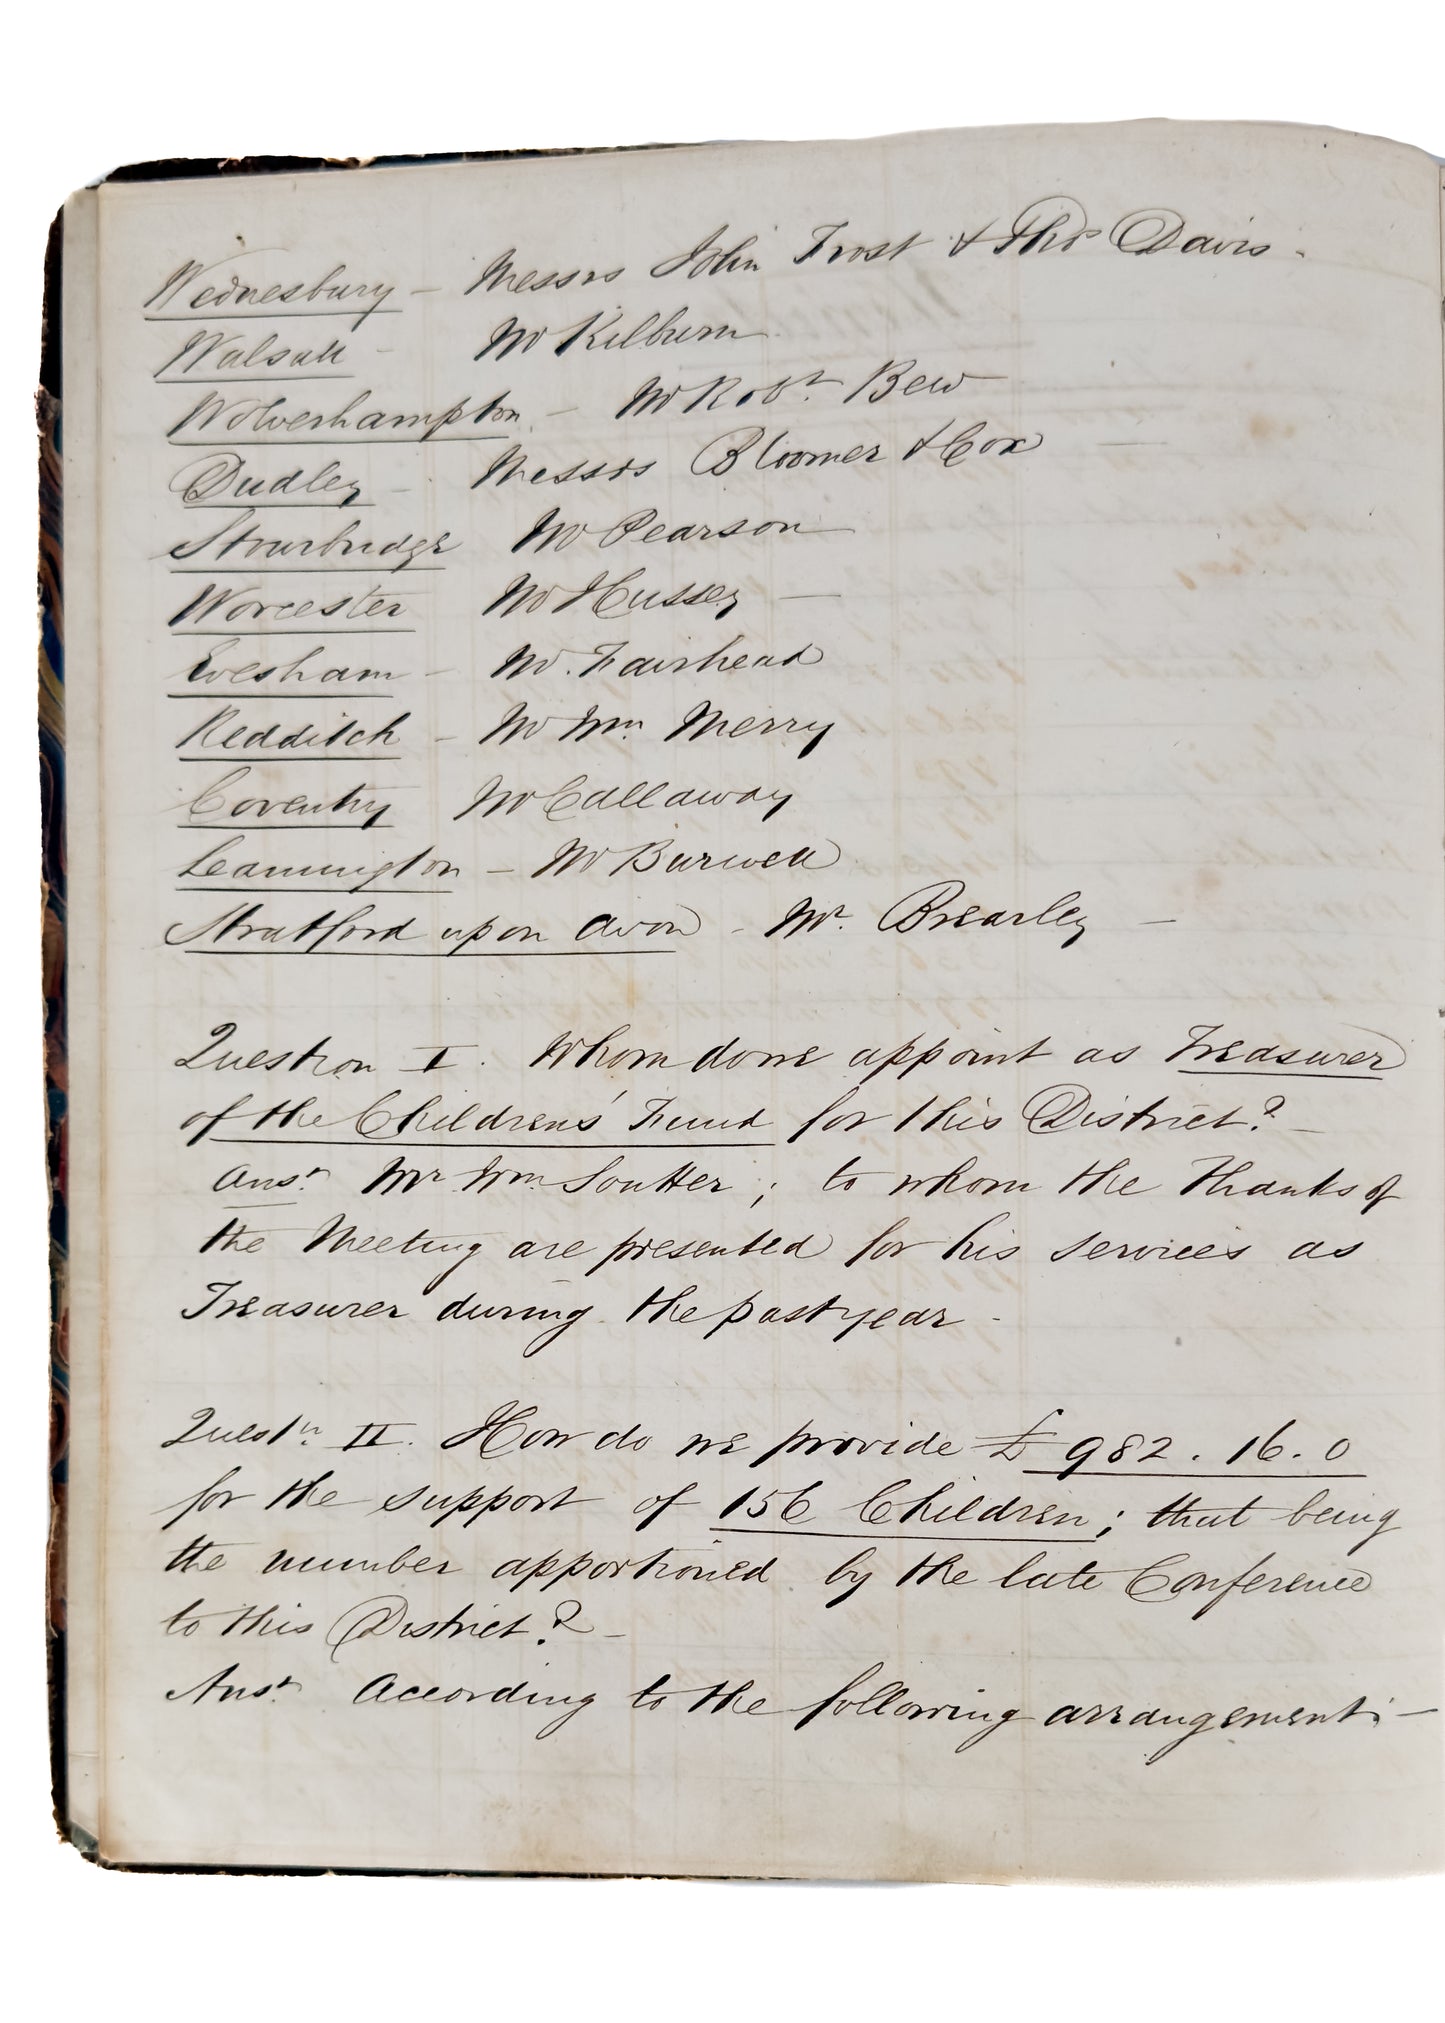 Wednesbury – Messrs John Frost & Thos Davis -
Walsall - Mr Kilburn
Wolverhampton - Mr Robt. Bew
Dudley - Messrs Bloomer & Cox —
Stourbridge Mr Pearson
Worcester Mr Hussey —
Evesham - Mr. Fairhead
Redditch - Mr Wm. Merry
Coventry Mr Callaway
Leamington – Mr Burwell
Stratford upon Avon - Mr. Brearley —
Question I. Whom do we appoint as Treasurer
of the Childrens' Fund for this District? –
Ansr. Mr Wm Soutter; to whom the Thanks of
the Meeting are presented for his services as
Treasurer during the past year -
Questn. II. How do we provide £982.16.0
for the support of 156 Children; that being
the number apportioned by the late Conference
to this District? –
Ansr. According to the following arrangement: —